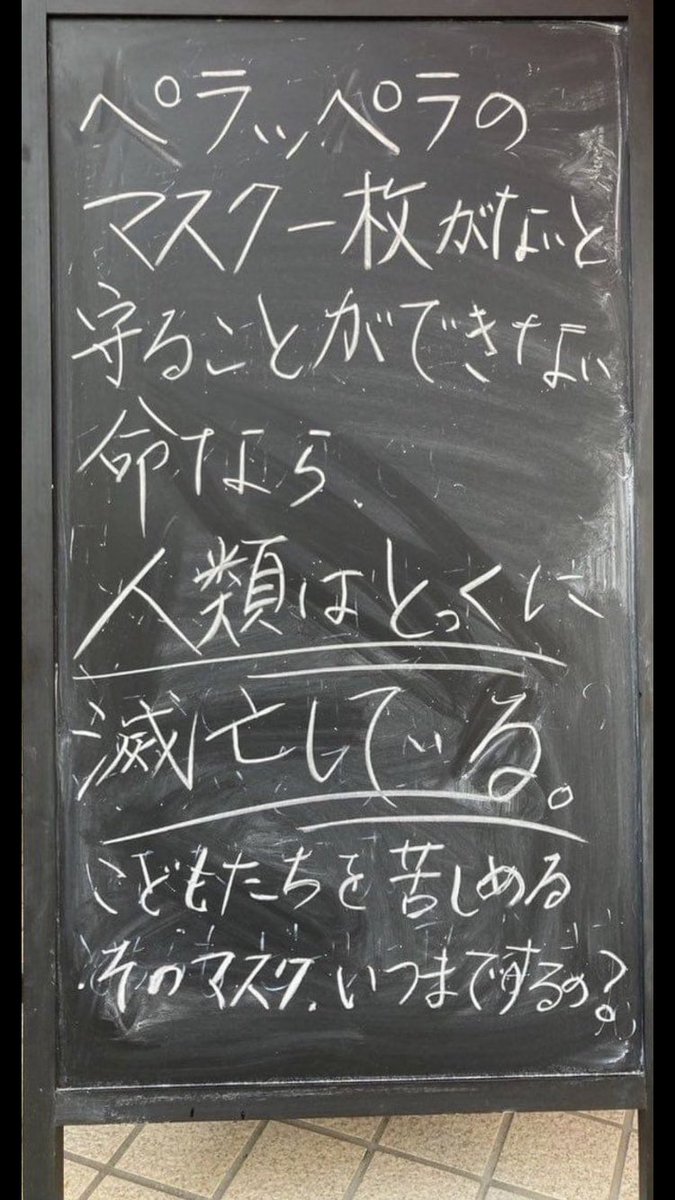 ペラッペラの
マスク一枚がないと
守ることができない
命なら、
人類はとっくに
滅亡している。
こどもたちを苦しめる
そのマスク、いつまでするの?